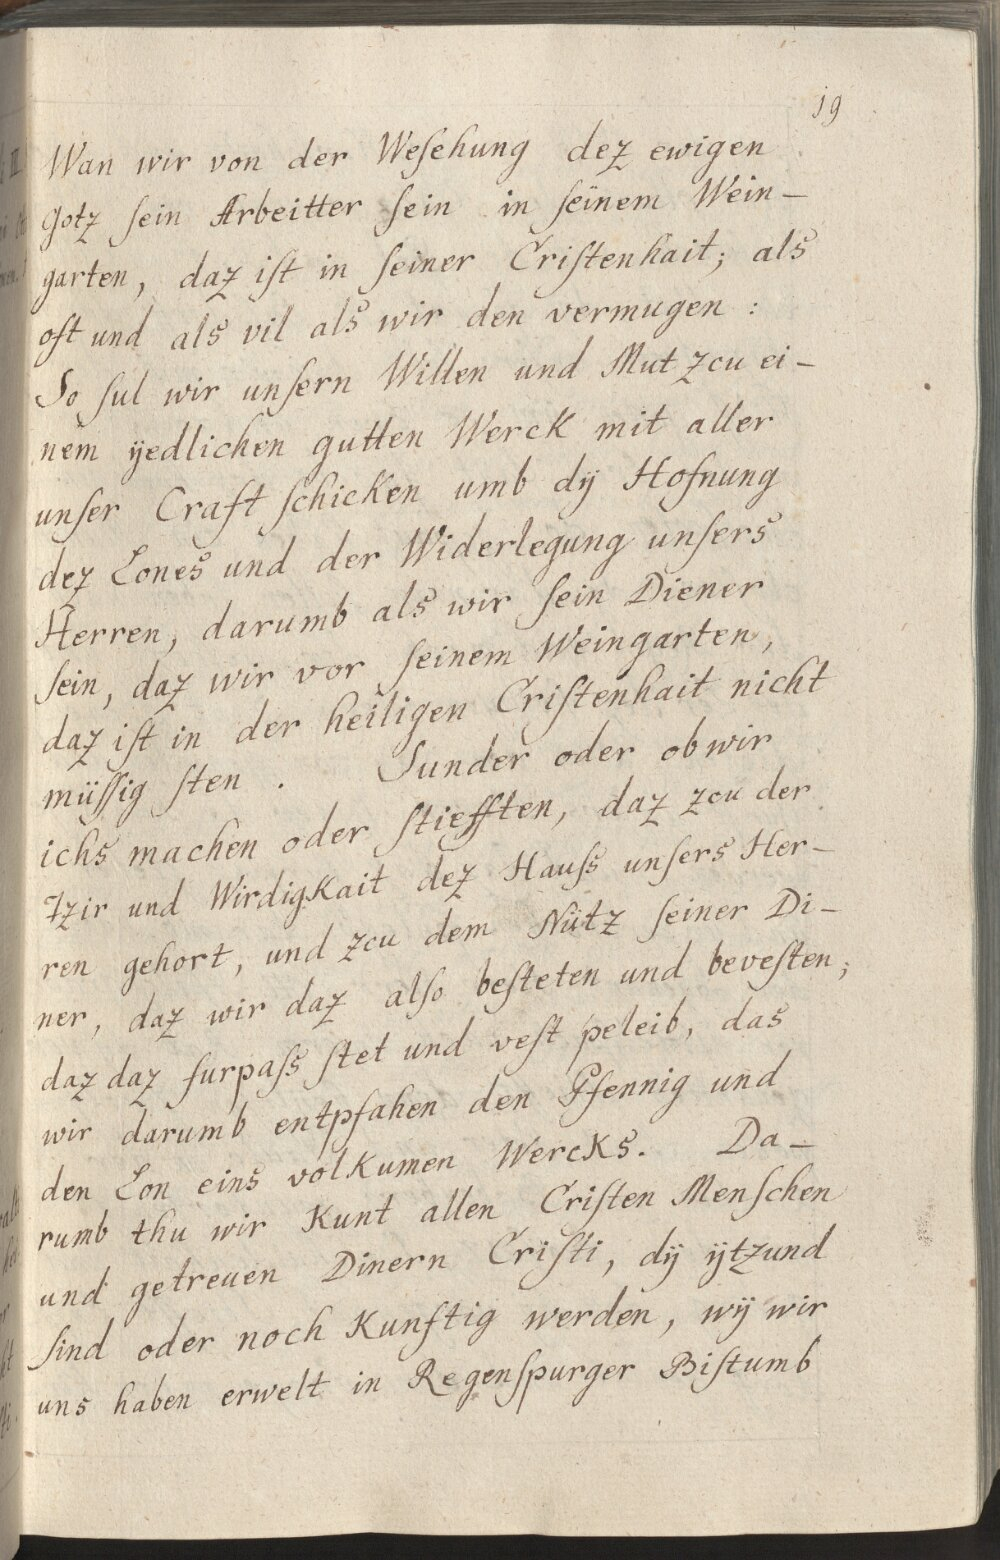 19
Wan wir von der Weſehung dez ewigen
Gotz ſein Arbeitter ſein in ſeinem Wein-
garten, daz iſt in ſeiner Criſtenhait; als
oft und als vil als wir den vermugen:
So ſul wir unſern Willen und Mut zcu ei-
nem ÿedlichen gutten Werck mit aller
unſer Craft ſchicken umb dÿ Hofnung
dez Lones und der Widerlegung unſers
Herren, darumb als wir ſein Diener
ſein, daz wir vor ſeinem Weingarten,
daz iſt in der heiligen Criſtenhait nicht
müſſig ſten. Sunder oder ob wir
ichs machen oder ſtiefften, daz zcu der
Tzir und Wirdigkait dez Hauſs unſers Her-
ren gehort, und zcu dem Nütz ſeiner Di-
ner, daz wir daz alſo beſteten und beveſten;
daz daz furpaſs ſtet und veſt peleib, das
wir darumb entpfahen den Pfennig und
den Lon eins volkumen Wercks. Da-
rumb thu wir Kunt allen Criſten Menſchen
und getreuen Dinern Criſti, dÿ ÿtzund
ſind oder noch Kunftig werden, wÿ wir
uns haben erwelt in Regenſpurger Biſtumb